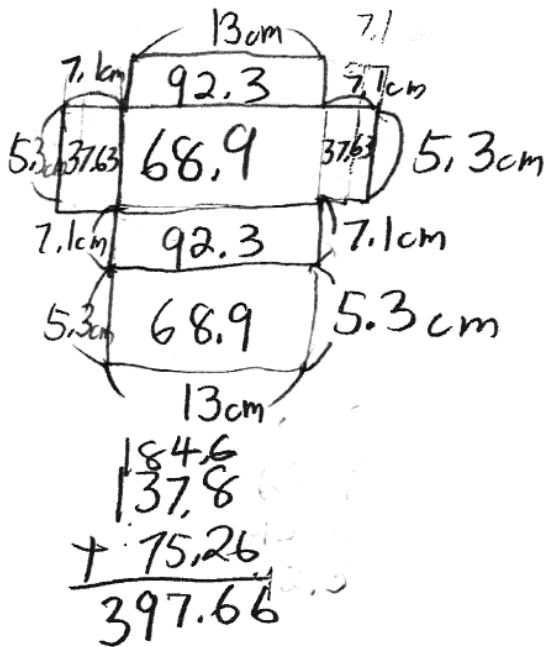 13cm
7.1
7.1cm
92.3
7.1cm
5.3cm
37.63
68.9
37.63
5.3cm
7.1cm
92.3
7.1cm
5.3cm
68.9
5.3cm
13cm
184.6
137.8
+ 75.26
397.66